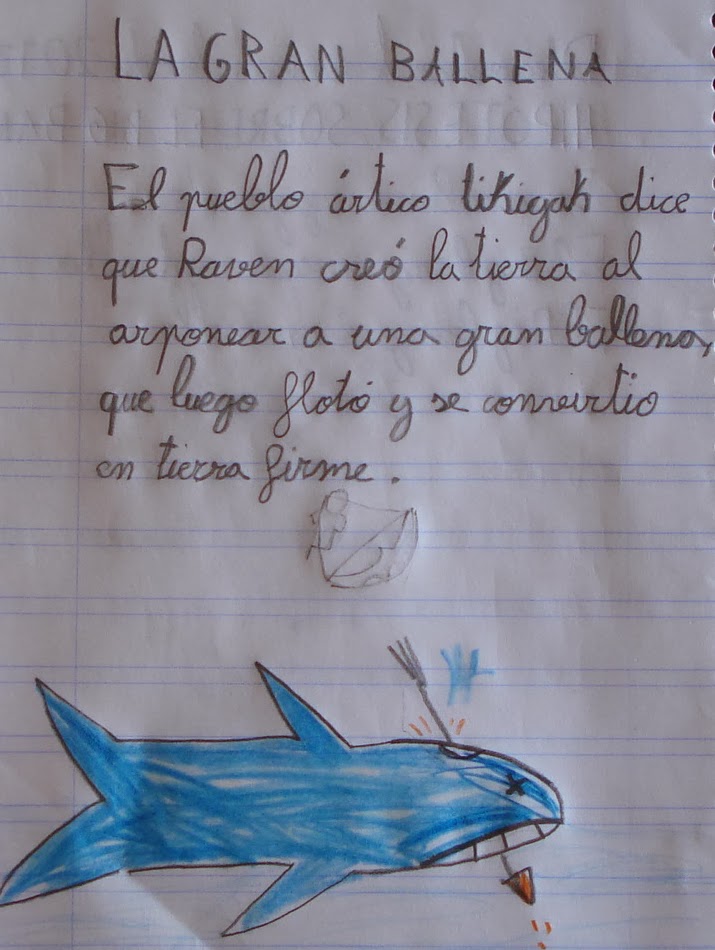 LA GRAN BALLENA
El pueblo ártico tikigak dice
que Raven creó la tierra al
arponear a una gran ballena,
que luego flotó y se convirtio
en tierra firme.